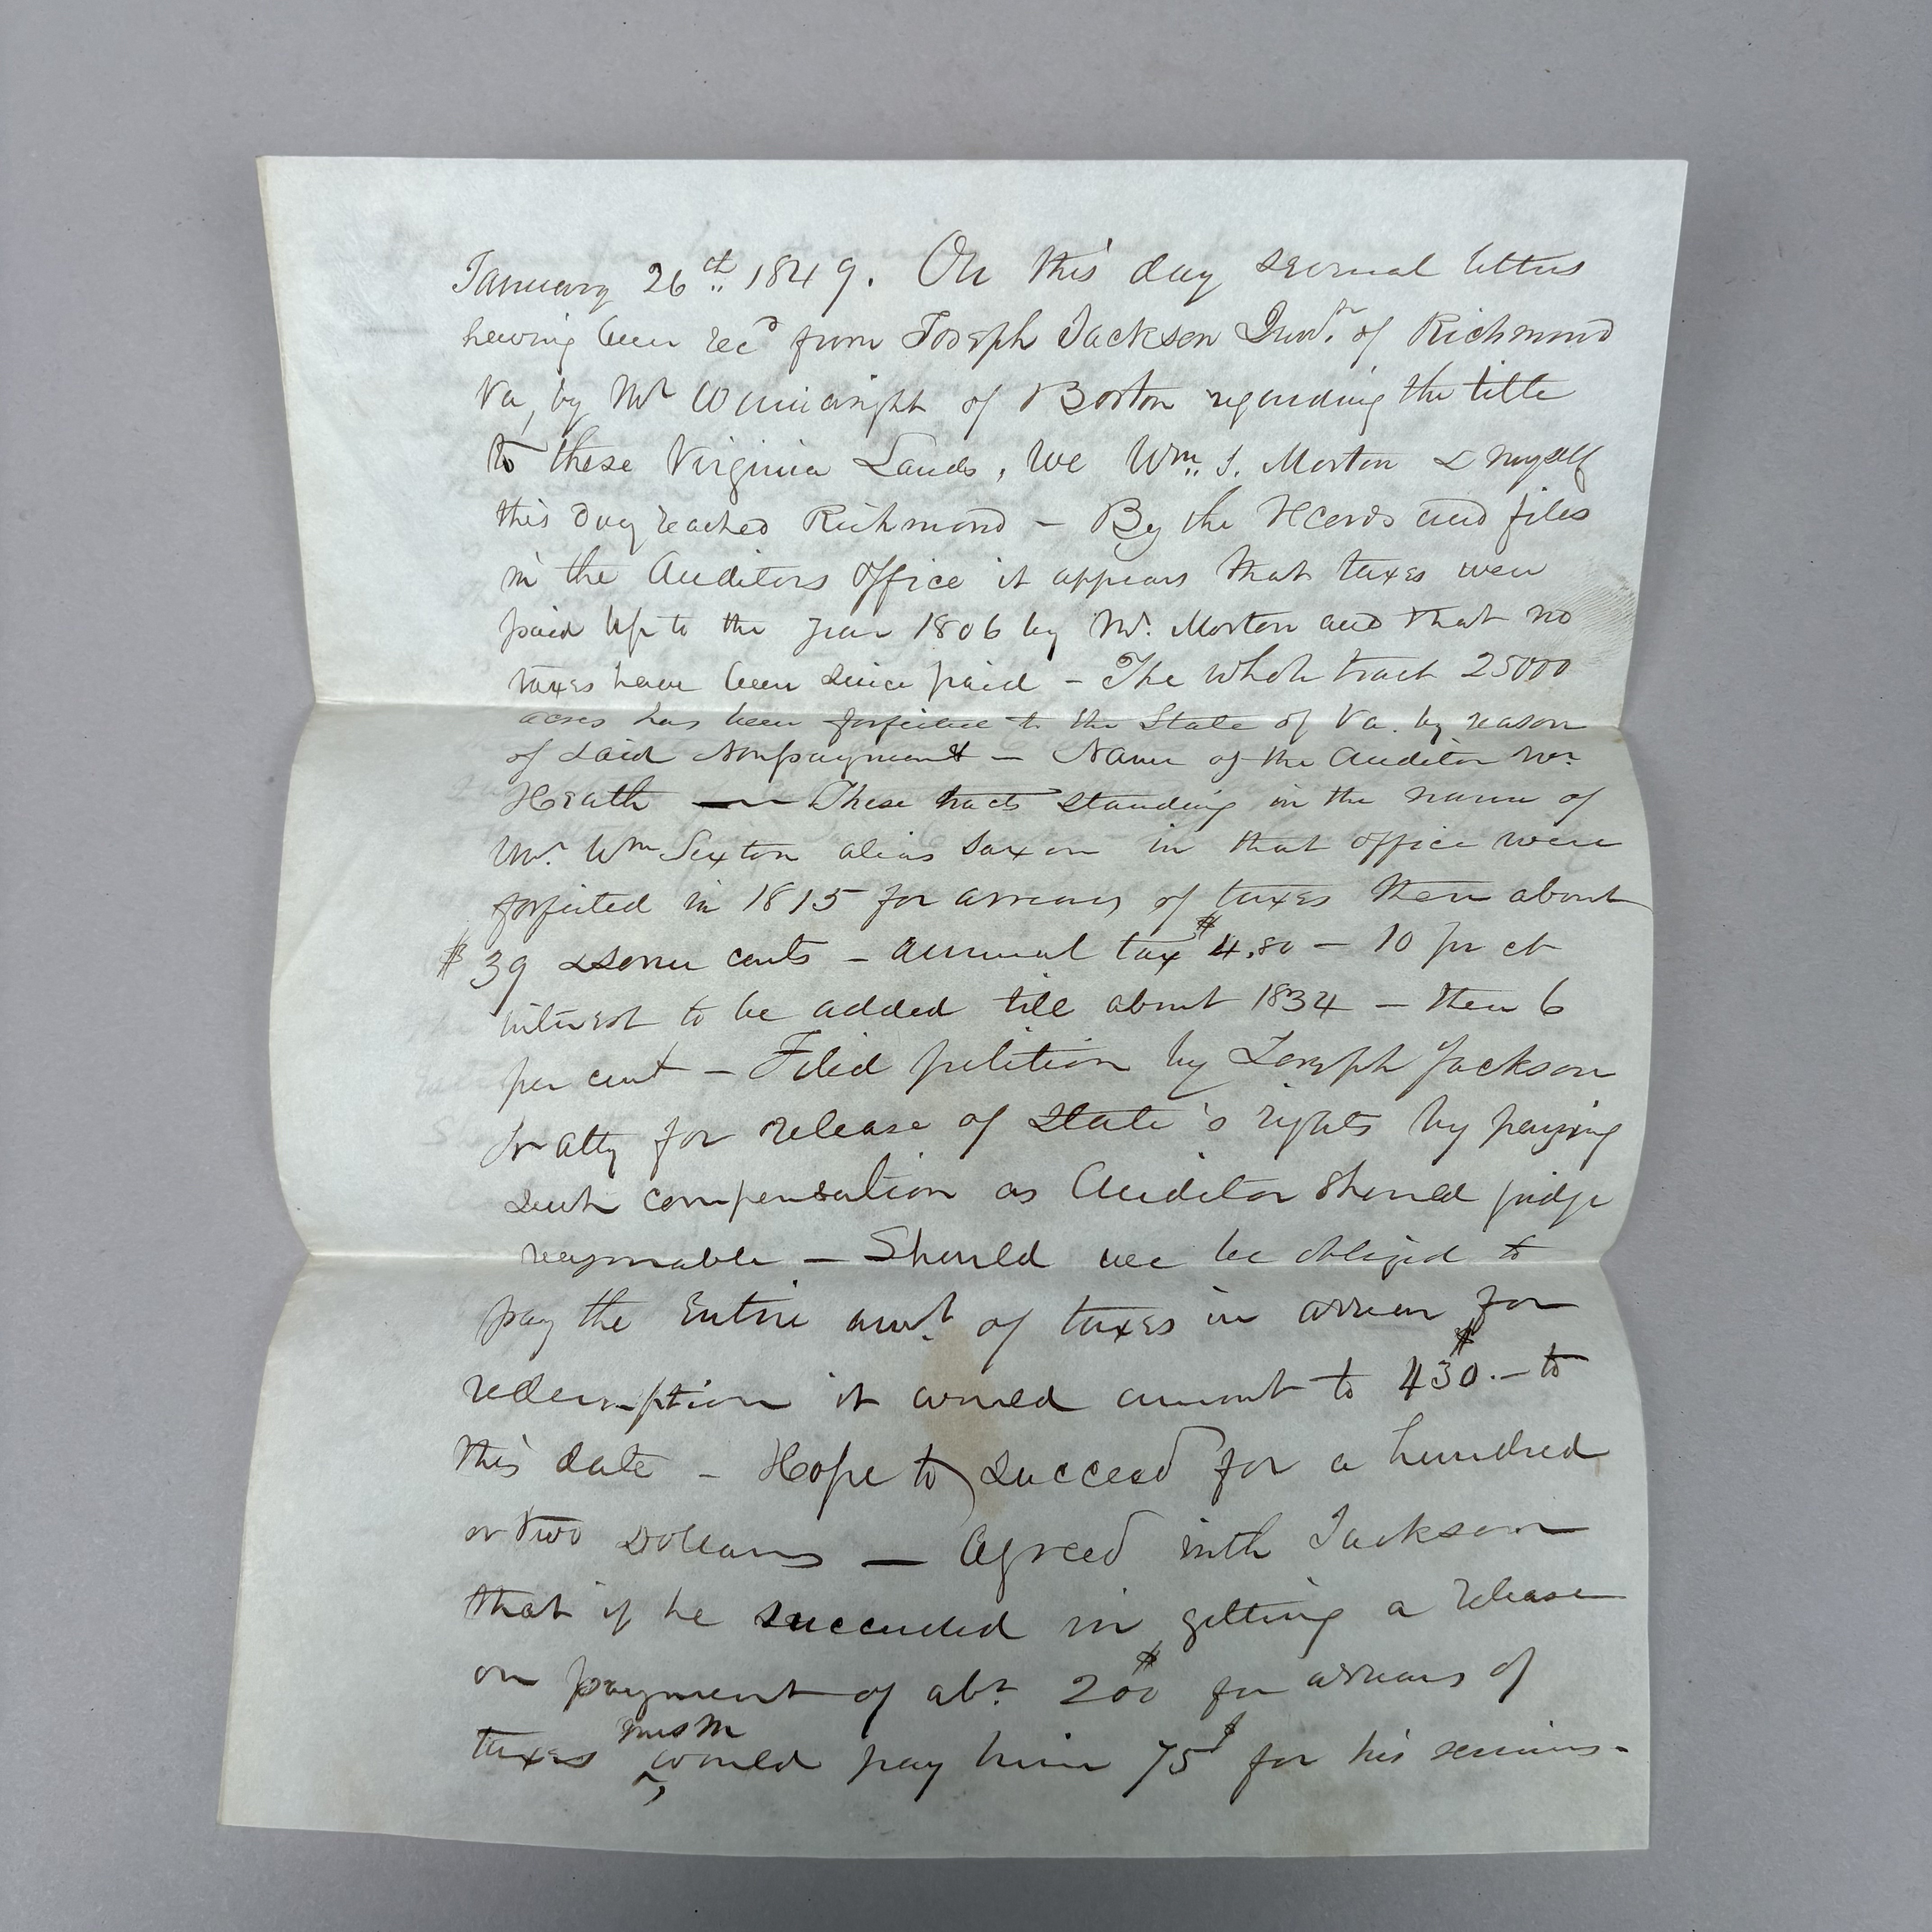 January 26th 1849. On this day several letters
having been recd from Joseph Jackson Junr. of Richmond
Va, by Mr Wainwright of Boston regarding the title
to these Virginia Lands, we Wm. S. Morton & myself
this day reached Richmond – By the records and files
in the Auditors office it appears that taxes were
paid up to the year 1806 by Mr. Morton and that no
taxes have been since paid – The whole tract 25000
acres has been forfeited to the State of Va. by reason
of said Nonpayment – Name of the Auditor Mr.
Heath — These tracts standing in the name of
Mr. Wm Sexton alias Saxon in that office were
forfeited in 1815 for arrears of taxes then about
$39 & some cents – annual tax $4.80 – 10 pr ct
interest to be added till about 1834 – then 6
per cent – Filed petition by Joseph Jackson
Jr atty for release of State's rights by paying
such compensation as Auditor should judge
reasonable – Should we be obliged to
pay the Entire amt. of taxes in arrear for
redemption it would amount to 430$. – to
this date – Hope to succeed for a hundred
or two Dollars — Agreed with Jackson
that if he succeeded in getting a release
on payment of abt. 200$ for arrears of
taxes Mrs M would pay him 75$ for his services –